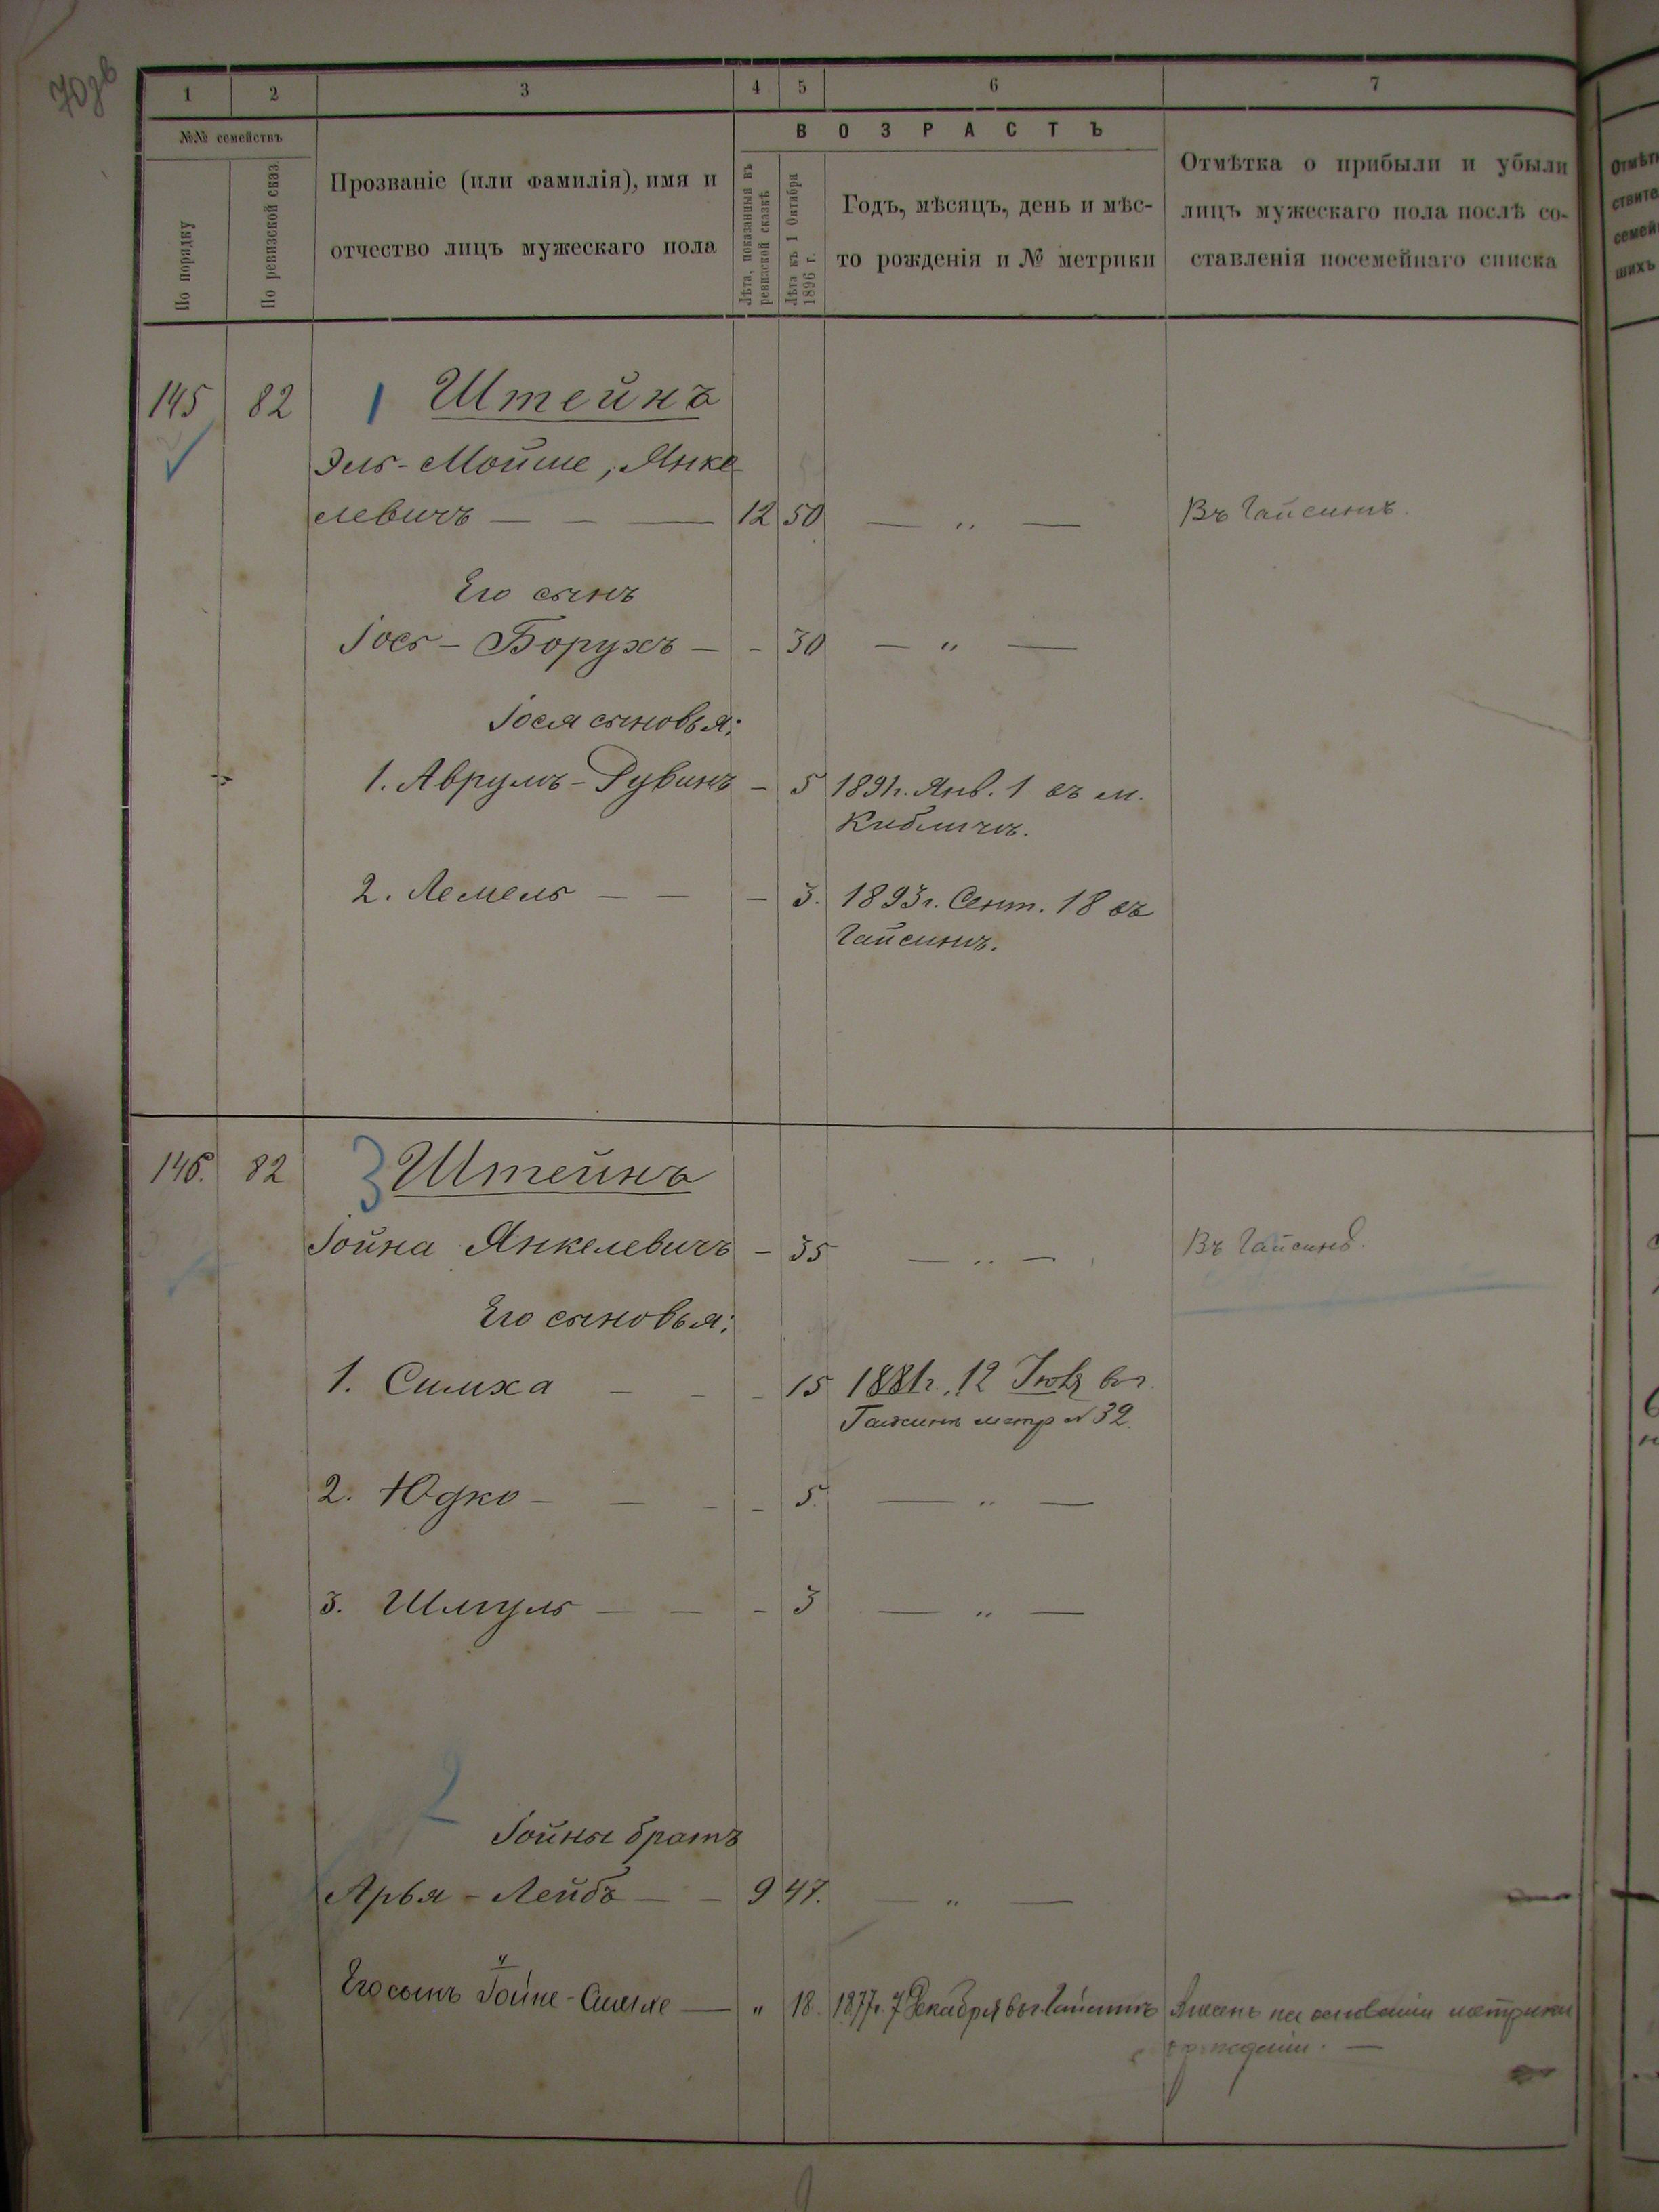 70зв
1 2 3 4 5 6 7
№№ семействъ
По порядку
По ревизской сказ
Прозваніе (или фамилія), имя и
отчество лицъ мужескаго пола
ВОЗРАСТЪ
Лѣта, показанныя въ
ревизской сказкѣ
Лѣта къ 1 Октября
1896 г.
Годъ, мѣсяцъ, день и мѣс-
то рожденія и № метрики
Отмѣтка о прибыли и убыли
лицъ мужескаго пола послѣ со-
ставленія посемейнаго списка
145 82 1 Штейнъ
Эль-Мойше, Янке-
левичъ — — — 12 50 — „ — Въ Гайсинѣ.
Его сынъ
Іось-Борухъ — - 30 — „ —
Іося сыновья:
1. Аврумъ-Рувинъ - 5 1891г. Янв. 1 въ м.
Кибличѣ.
2. Лемель — — - 3. 1893г. Сент. 18 въ
Гайсинѣ.
146. 82 3 Штейнъ
Іойна Янкелевичъ - 35 — „ — Въ Гайсинѣ.
Его сыновья:
1. Симха — - - 15 1881г. 12 въ г.
Гайсинѣ метр № 32.
2. Юдко — — - - 5. — „ —
3. Шмуль — — - 3 — „ —
2
Іойны братъ
Арья-Лейбъ — - 9 47. — „ —
Его сынъ Іойне- — „ 18. 1877г. 7 Декабря въ г. Гайсинѣ на основаніи метрики
о рожденіи. —